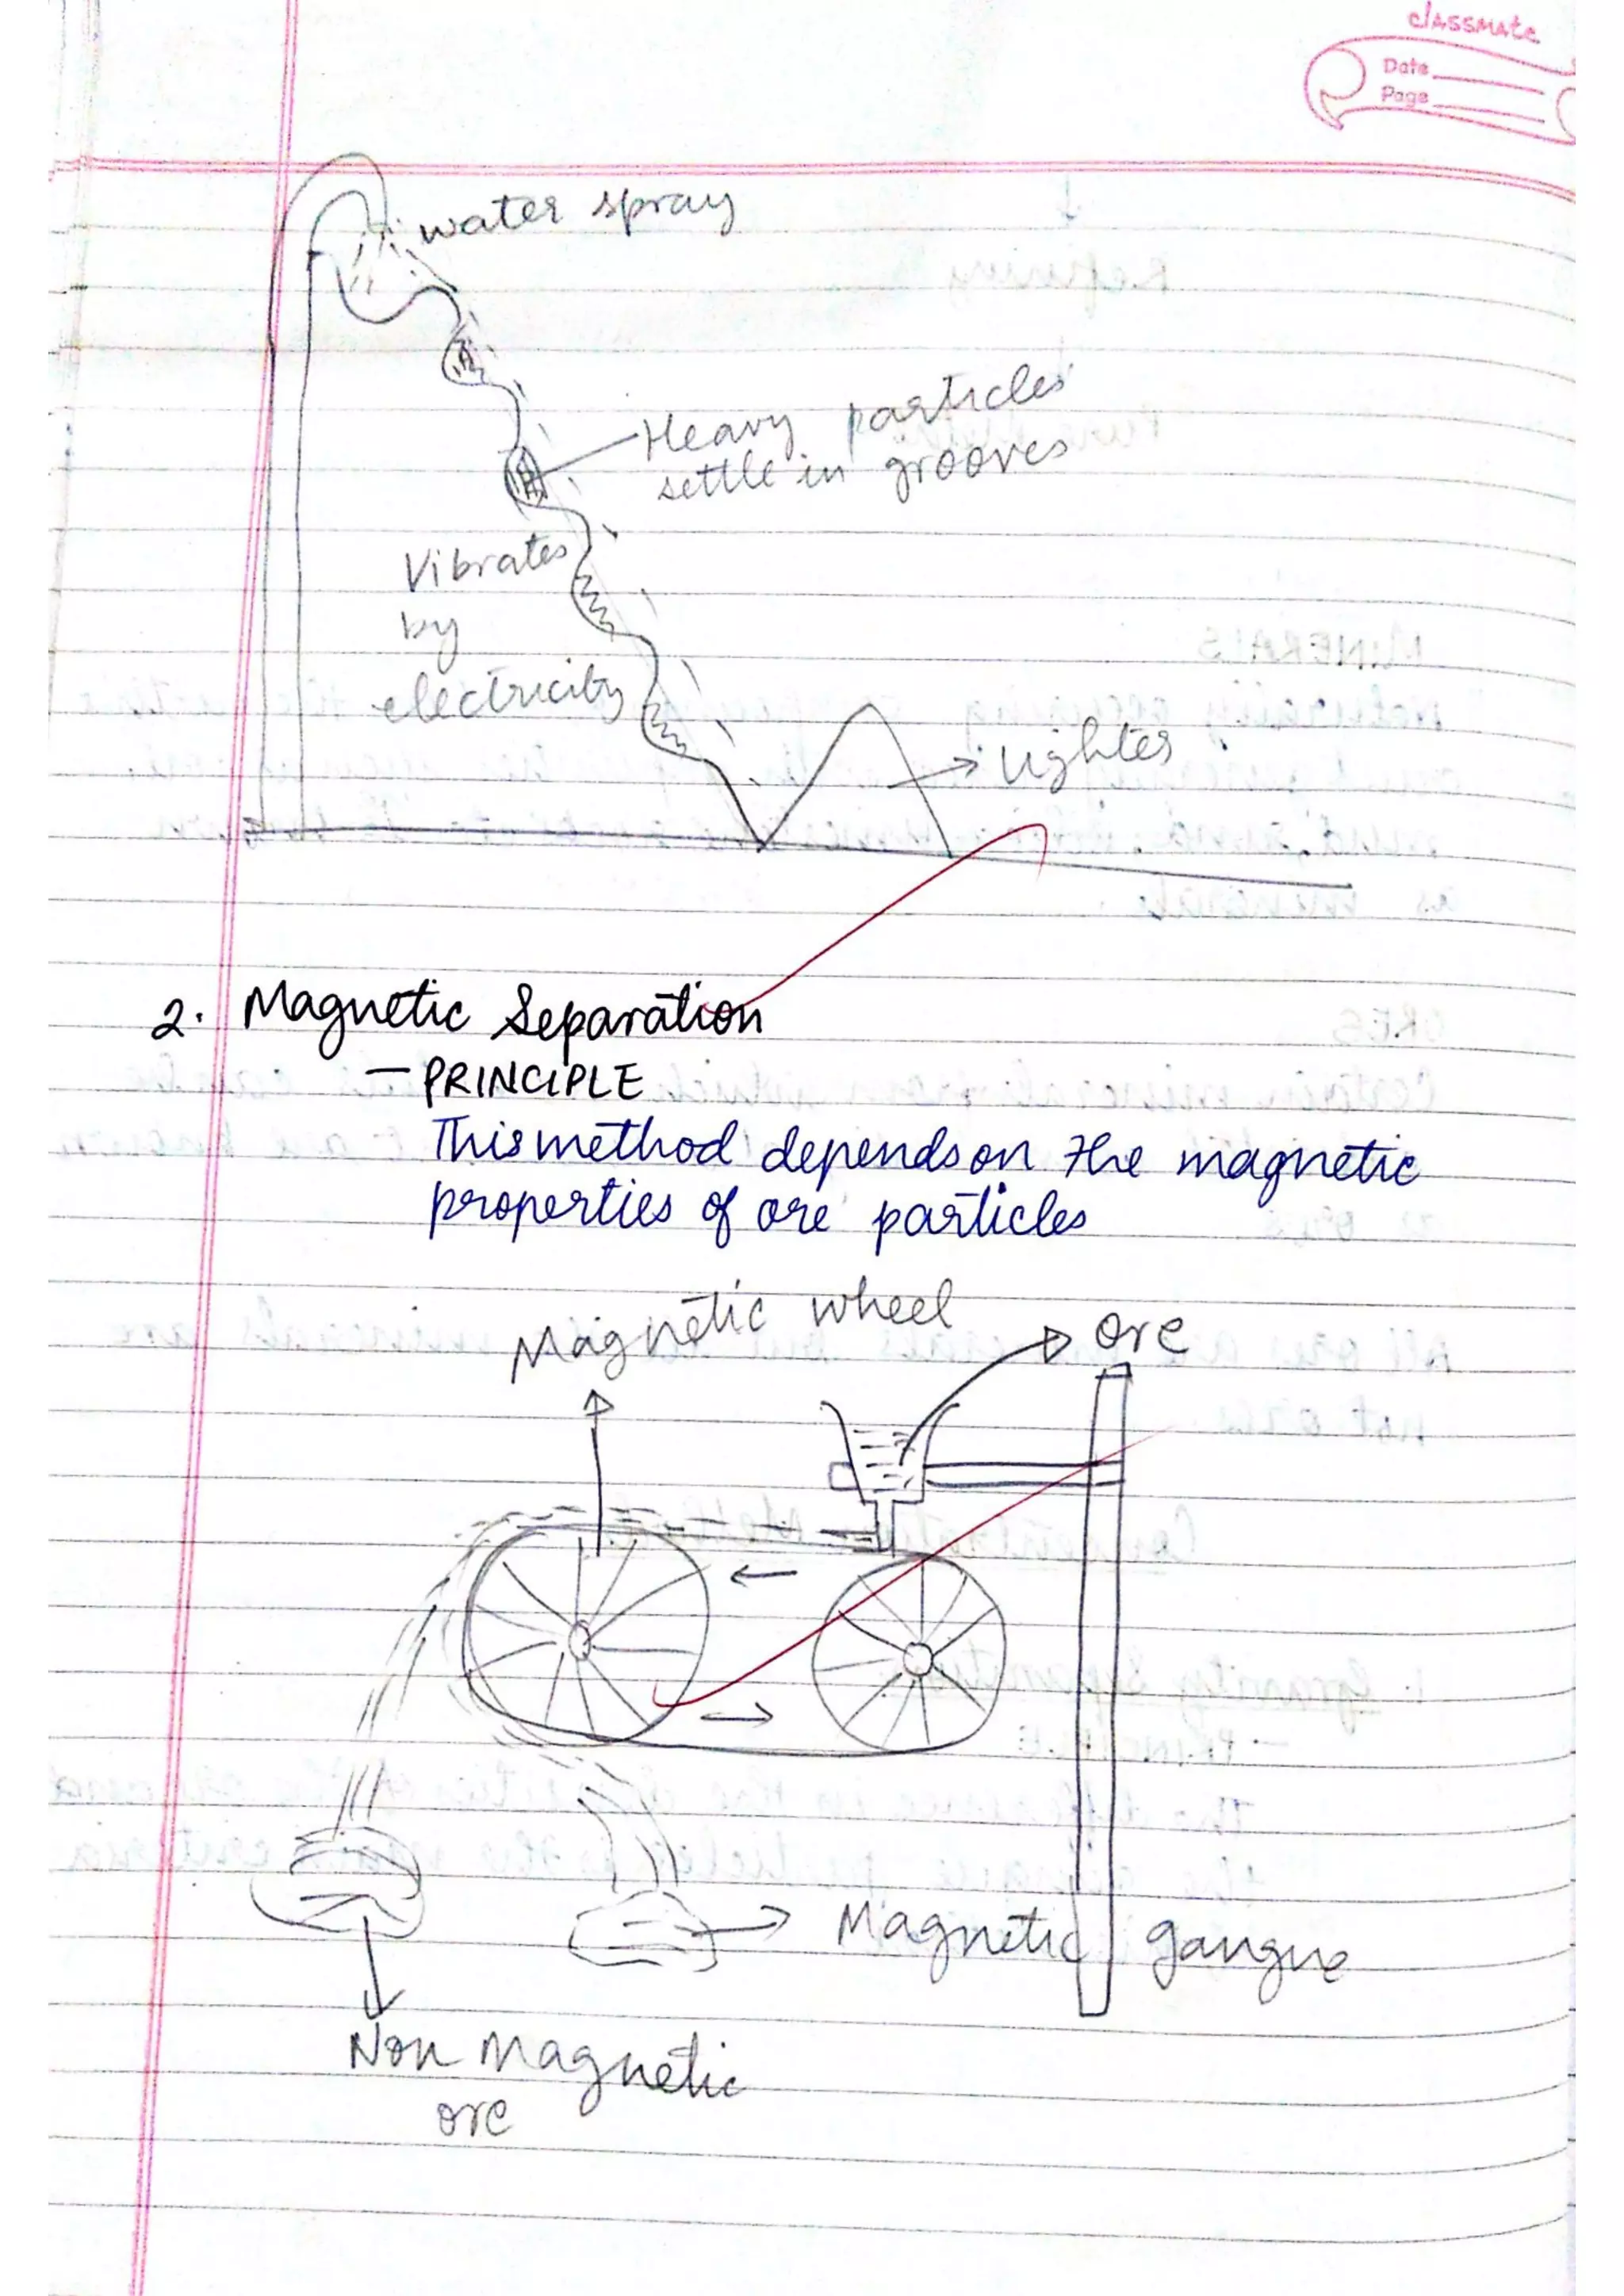 classmate
Date
Page
water spray
Heavy particles
settle in grooves
Vibrates
by
electricity
lighter
2. Magnetic Separation
- PRINCIPLE
This method depends on the magnetic
properties of ore particles
Magnetic wheel
ore
Magnetic gangue
Non Magnetic
ore